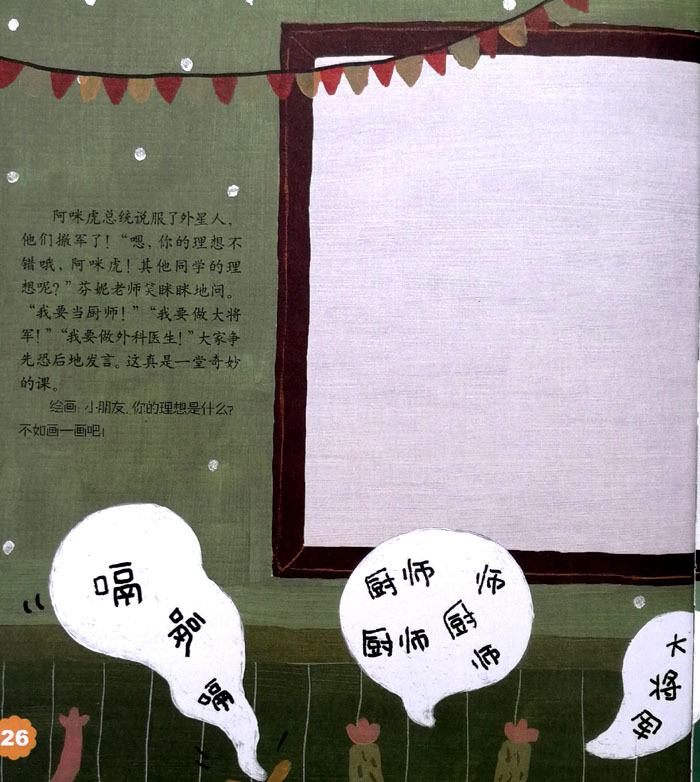 阿咪虎总统说服了外星人，
他们撤军了！“嗯，你的理想不
错哦，阿咪虎！其他同学的理
想呢？”芬妮老师笑眯眯地问。
“我要当厨师！”“我要做大将
军！”“我要做外科医生！”大家争
先恐后地发言。这真是一堂奇妙
的课。
绘画：小朋友，你的理想是什么？
不如画一画吧！
嗝
嗝
嗝
厨师 师
厨师 厨
师
大
将
军
26